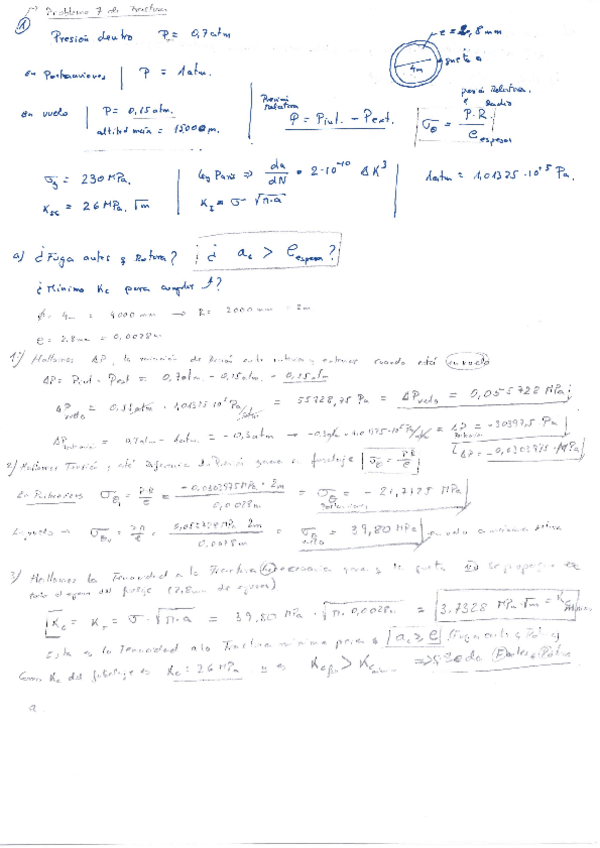 Problema 7 de Fractura
① Presión dentro P = 0,7 atm
e = 2,8 mm
4m
en Portaaviones | P = 1 atm.
en vuelo | P = 0,15 atm.
altitud = 12000 m.
Presión relativa
P = Pint. - Pext.
presión Relativa
Radio
σθ = P·R / e espesor
σy = 230 MPa.
KIC = 26 MPa. √m
Ley Paris ⇒ da/dN = 2·10⁻¹⁰ ΔK³
KI = σ √π·a
1atm = 1,01325·10⁵ Pa.
a) ¿Fuga antes q Rotura? ¿ ac > e espesor ?
¿Mínimo Kc para cumplir ↑?
φ = 4m = 4000 mm → R = 2000 mm = 2m
e = 2,8 mm = 0,0028 m
1º) Hallamos ΔP, la variación de Presión entre interior y exterior cuando está en vuelo
ΔP = Pint - Pext = 0,7atm - 0,15atm = 0,55atm
ΔP vuelo = 0,55atm · 1,01325·10⁵ Pa/atm = 55728,75 Pa = ΔP vuelo = 0,055728 MPa
ΔP = 0,7atm - 1atm = -0,3atm → -0,3atm · 1,01325·10⁵ Pa/atm = ΔP = -30397,5 Pa
ΔP = -0,0303975 MPa
2) Hallamos Tensión q esta diferencia de Presión genera en fuselaje σθ = P·R/e
En Portaaviones σθ = P·R/e = -0,0303975 MPa · 2m / 0,0028m = σθ = -21,7125 MPa
En vuelo → σθ = P·R/e = 0,055728 MPa · 2m / 0,0028m = σθ vuelo = 39,80 MPa
3) Hallamos la Tenacidad a la Fractura necesaria para q la grieta se propague
fuselaje (2,8mm de espesor)
Kc = KI = σ · √π·a = 39,80 MPa · √π·0,0028m = 3,7328 MPa·√m = Kc mínima
Esta es la Tenacidad a la Fractura mínima para q ac ≥ e (Fuga antes q Rotura)
Como Kc del fuselaje es Kc = 26 MPa
a